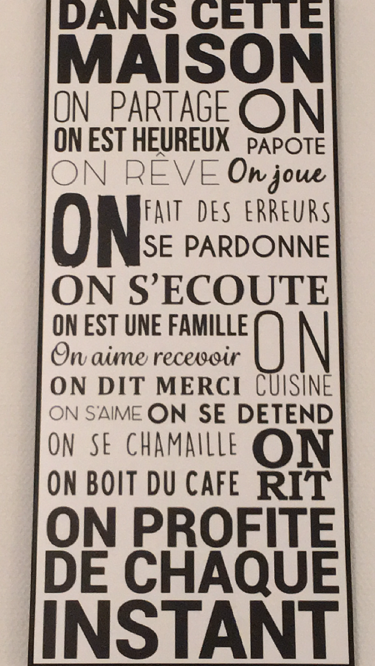 DANS CETTE
MAISON
ON PARTAGE
ON EST HEUREUX
ON
PAPOTE
ON RÊVE On joue
ON
FAIT DES ERREURS
SE PARDONNE
ON S'ECOUTE
ON EST UNE FAMILLE
On aime recevoir
ON DIT MERCI
ON
CUISINE
ON S'AIME ON SE DETEND
ON SE CHAMAILLE
ON BOIT DU CAFE
ON
RIT
ON PROFITE
DE CHAQUE
INSTANT